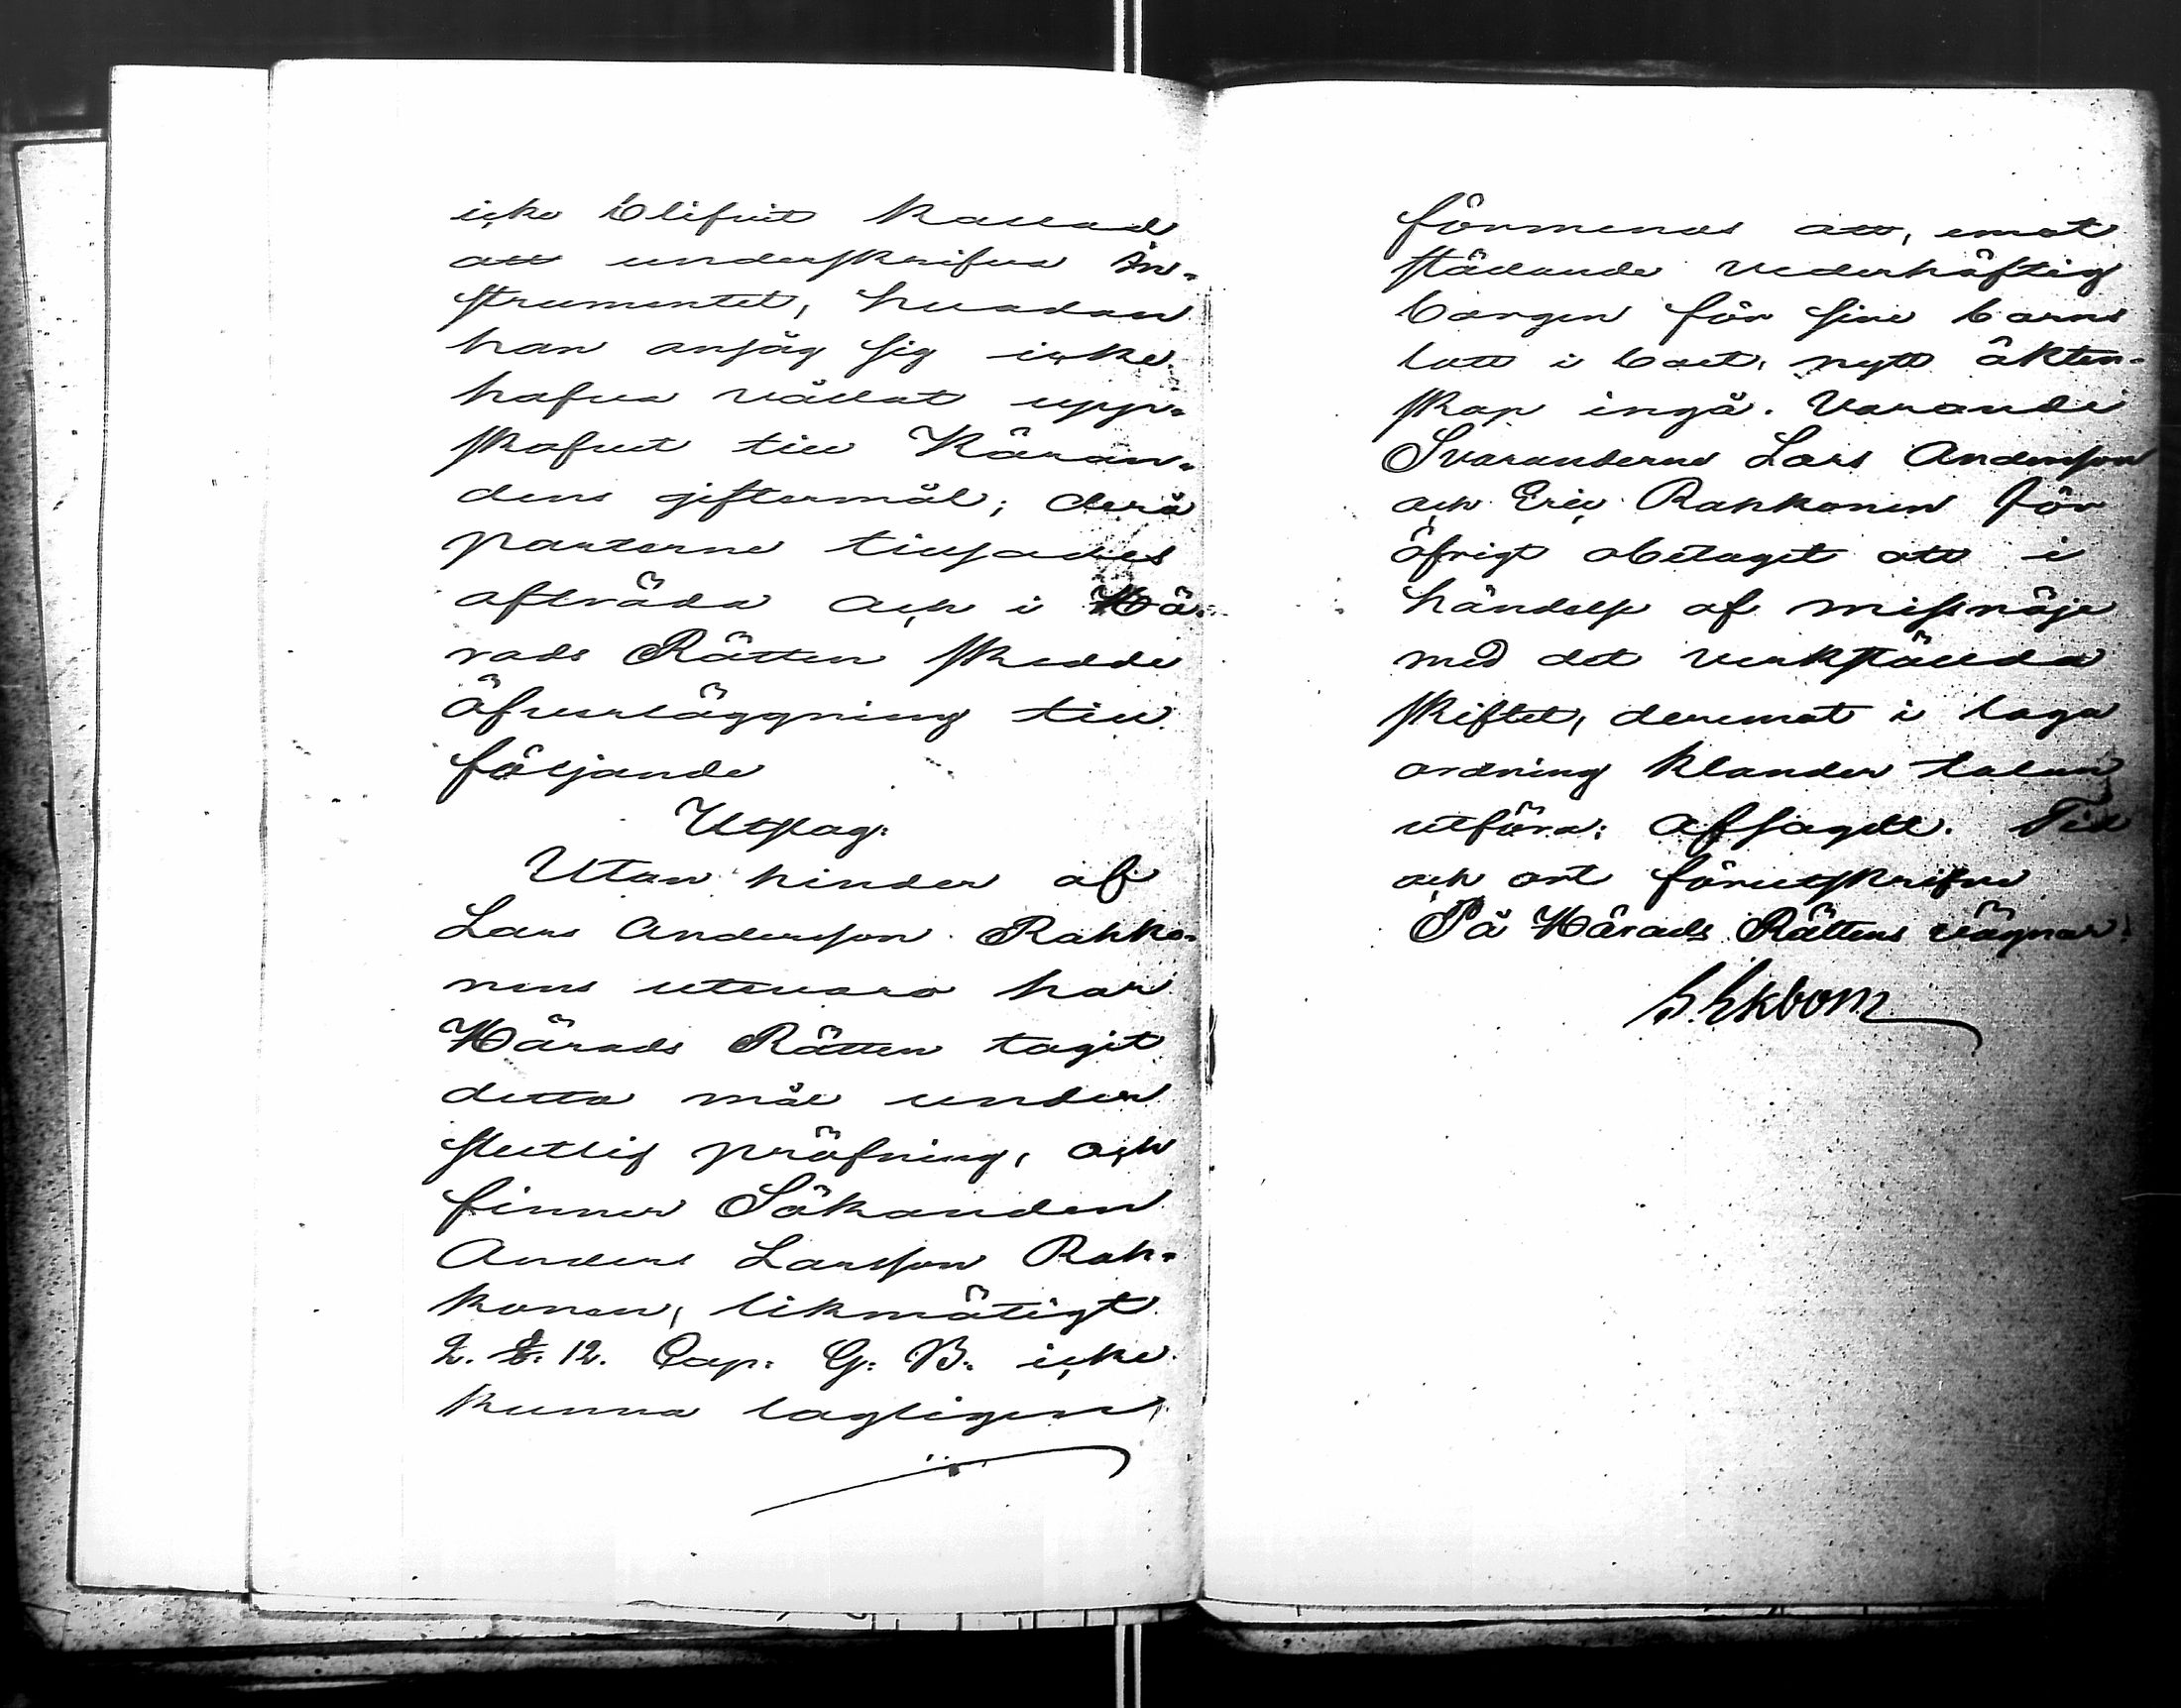 icke blifvit kallad
att underskrifva in-
strumentet, hvadan
han ansåg sig icke
hafva vållat upp-
skofvet till Käran-
dens giftermål; derå
parterne tillsades
afträda och i Hä-
rads Rätten skedde
öfverläggning till
följande
Utslag:
Utan hinder af
Lars Andersson Rahko-
nens utevaro har
Härads Rätten tagit
detta mål under
slutlig pröfning, och
finner Sökanden
Anders Larsson Rah-
konen, likmätigt
2. §. 12. Cap: G: B: icke
kunna lagligen
förmenas att, emot
ställande vederhäftig
borgen för sine barns
lott i boet, nytt äkten-
skap ingå. Varande
Svaranderne Lars Andersson
och Eric Rahkonen för
öfrigt obetaget att i
händelse af missnöje
med det verkstälda
skiftet, deremot i laga
ordning klander talan
utföra: Afsagdt. Tid
och ort förutskrifne
På Härads Rättens vägnar:
Ekbom